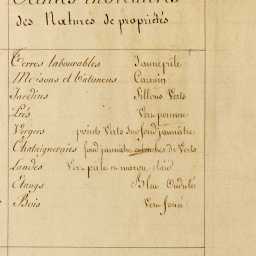 des Natures de propriétés
Terres labourables Jaunepâle
Maisons et Batimens Carmin
Jardins Sillons Verts
Prés Vert pomme
Vergers points Verts sur fond jaunâtre
Chataigneraies fond jaunâtre de Verts
Landes Vert pale et maron
Etangs Bleu
Bois Vert foncé